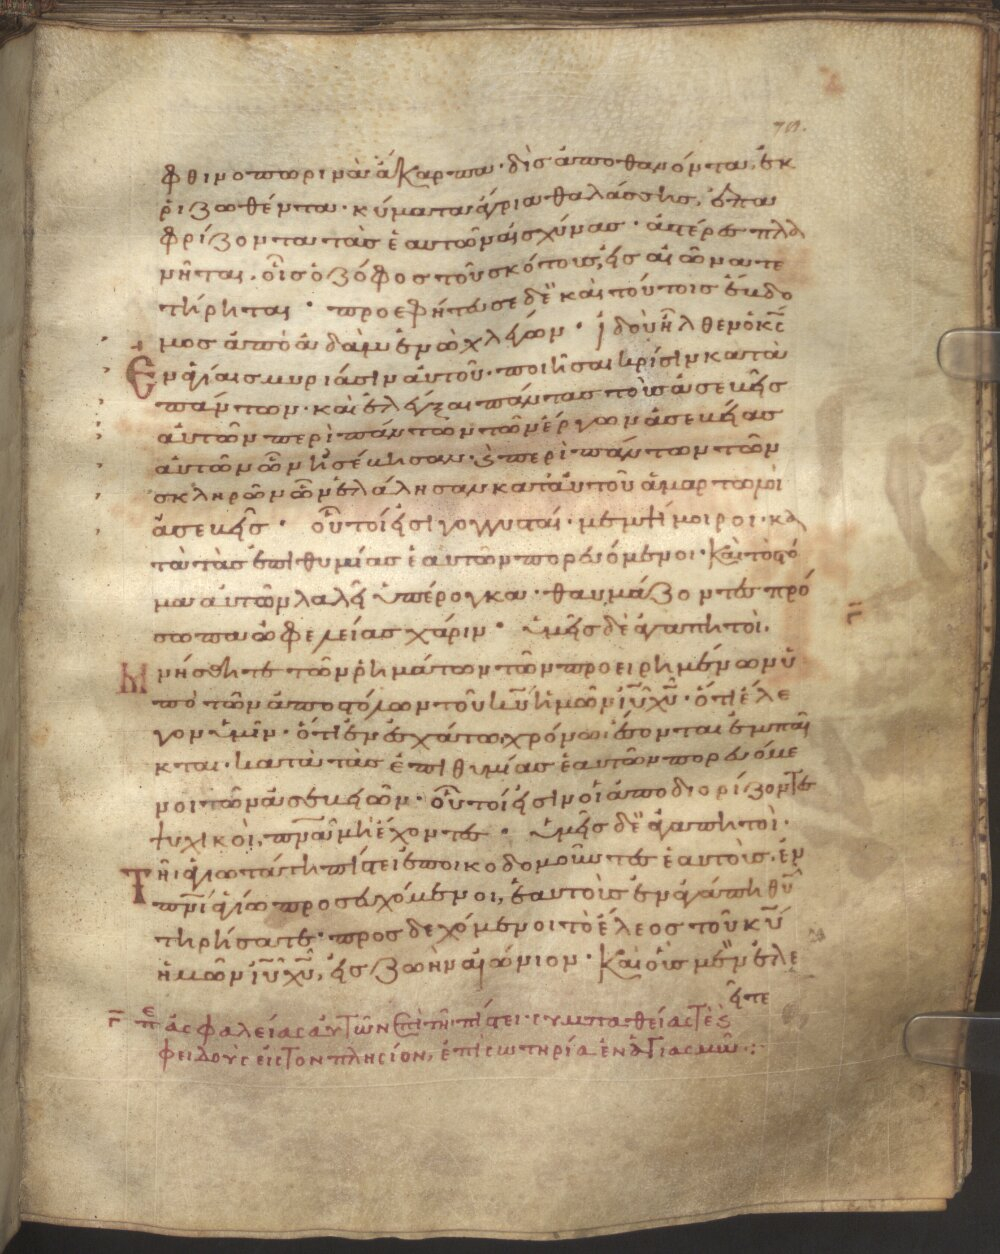 φθινοπωρινὰ ἄκαρπα· δὶς ἀποθανόντα, ἐκ
ριζωθέντα· κύματα ἄγρια θαλάσσης, ἐπα
φρίζοντα τὰς ἑαυτῶν αἰσχύνας· ἀστέρες πλα
νῆται. οἷς ὁ ζόφος τοῦ σκότους, εἰς αἰῶνα τε
τήρηται· προεφήτευσε δὲ καὶ τούτοις ἕβδο
μος ἀπὸ ἀδὰμ ἐνὼχ λέγων· ἰδοὺ ἦλθεν ὁ κς
ἐν ἁγίαις μυριάσιν αὐτοῦ· ποιῆσαι κρίσιν κατὰ
πάντων· καὶ ἐλέγξαι πάντας τοὺς ἀσεβεῖς
αὐτῶν περὶ πάντων τῶν ἔργων ἀσεβείας
αὐτῶν ὧν ἠσέβησαν· ϗ περὶ πάντων τῶν
σκληρῶν ὧν ἐλάλησαν κατ' αὐτοῦ ἁμαρτωλοὶ
ἀσεβεῖς· οὗτοί εἰσι γογγυσταί· μεμψίμοιροι· κα
τὰ τὰς ἐπιθυμίας ἑαυτῶν πορευόμενοι· καὶ τὸ στό
μα αὐτῶν λαλεῖ ὑπέρογκα· θαυμάζοντες πρό
σωπα ὠφελείας χάριν· ὑμεῖς δὲ ἀγαπητοὶ.
μνήσθητε τῶν ρημάτων τῶν προειρημένων ὑ
πὸ τῶν ἀποστόλων τοῦ κυ ἡμῶν ιυ χυ· ὅτι ἔλε
γον ὑμῖν· ὅτι ἐν ἐσχάτω χρόνω ἔσονται ἐμπαῖ
κται· κατὰ τὰς ἐπιθυμίας ἑαυτῶν πορευόμε
νοι τῶν ἀσεβειῶν· οὗτοί εἰσιν οἱ ἀποδιορίζοντες
ψυχικοὶ, πνα μὴ ἔχοντες· ὑμεῖς δὲ ἀγαπητοὶ·
τῆ ἁγιωτάτη πίστει ἐποικοδομοῦντες ἑαυτοὺς, ἐν
πνι ἁγίω προσευχόμενοι, ἑαυτοὺς ἐν ἀγάπη θυ
τηρήσατε· προσδεχόμενοι τὸ ἔλεος τοῦ κυ
ἡμῶν ιυ χυ, εἰς ζωὴν αἰώνιον· καὶ οὓς μὲν ἐλε
εῖτε
ἀσφαλείας αὐτῶν ἐπὶ τῆ πίστει· συμπαθείας τὲ
φειδοῦς εἰς τὸν πλησίον, ἐπὶ σωτηρία ἐν ἁγιασμῶ: